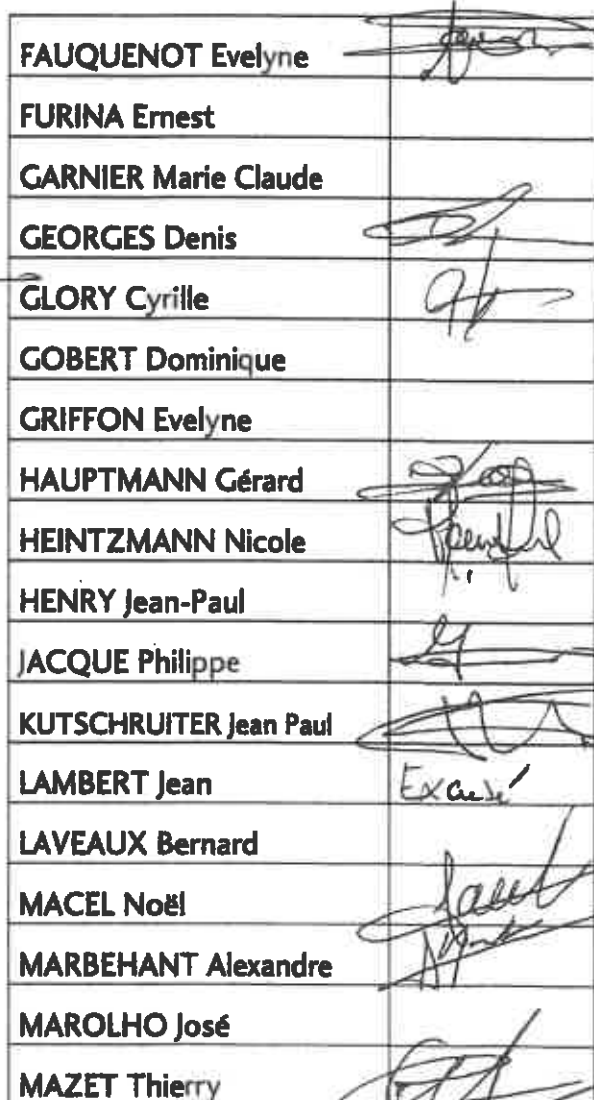 FAUQUENOT Evelyne
FURINA Ernest
GARNIER Marie Claude
GEORGES Denis
GLORY Cyrille
GOBERT Dominique
GRIFFON Evelyne
HAUPTMANN Gérard
HEINTZMANN Nicole
HENRY Jean-Paul
JACQUE Philippe
KUTSCHRUITER Jean Paul
LAMBERT Jean Excusé
LAVEAUX Bernard
MACEL Noël
MARBEHANT Alexandre
MAROLHO José
MAZET Thierry